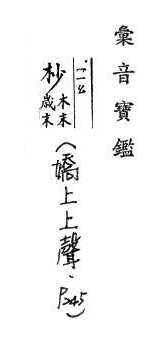 彙音寶鑑
杪 木末 歲末
(嬌上上聲、P345)